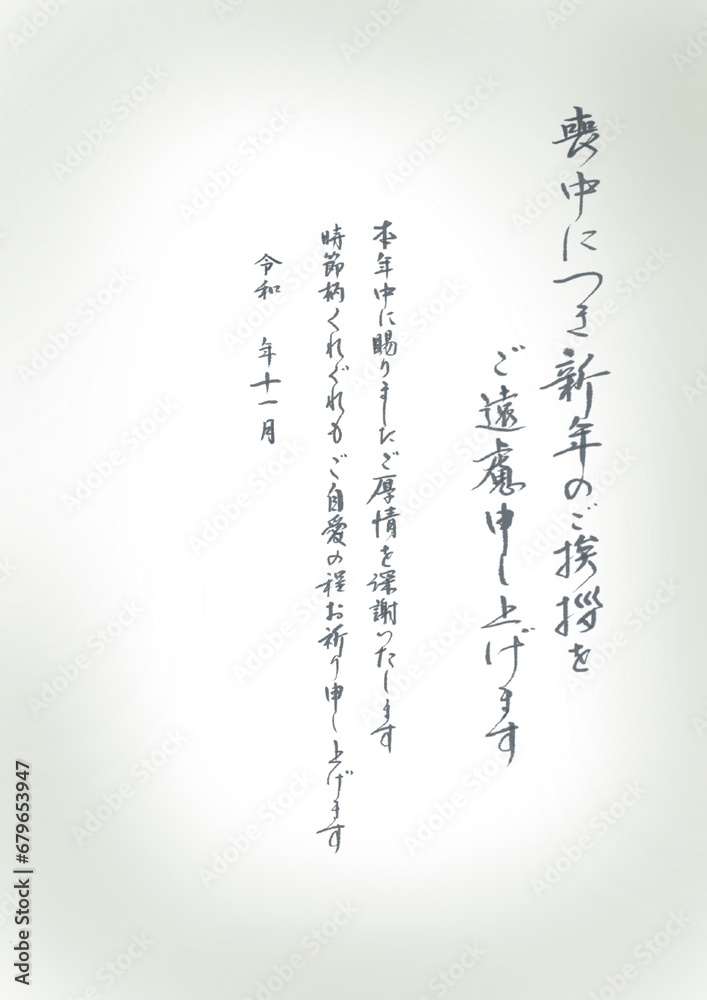 喪中につき新年のご挨拶を
ご遠慮申し上げます
本年中に賜りましたご厚情を深謝いたします
時節柄くれぐれもご自愛の程お祈り申し上げます
令和　年十一月
Adobe Stock | #679653947
Adobe Stock